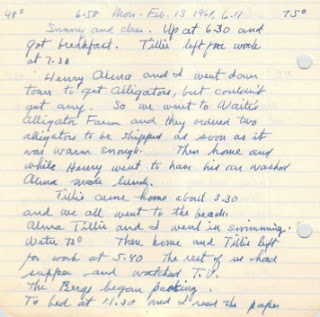 48° 6.58 Mon - Feb. 13 1961, 6.11 75°
Sunny and clear. Up at 6.30 and
got breakfast. Tillie left for work
at 7.30
Henry Alma and I went down
town to get Alligators, but couldn't
get any. So we went to Waite's
Alligator Farm and they ordered two
alligators to be shipped as soon as it
was warm enough. Then home and
while Henry went to have his car washed
Alma made lunch.
Tillie came home about 3.30
and we all went to the beach.
Alma Tillie and I went in swimming.
Water 72° Then home and Tillie left
for work at 5.40 The rest of us had
supper and watched T.V.
The Bergs began packing.
To bed at 11.30 and I read the paper